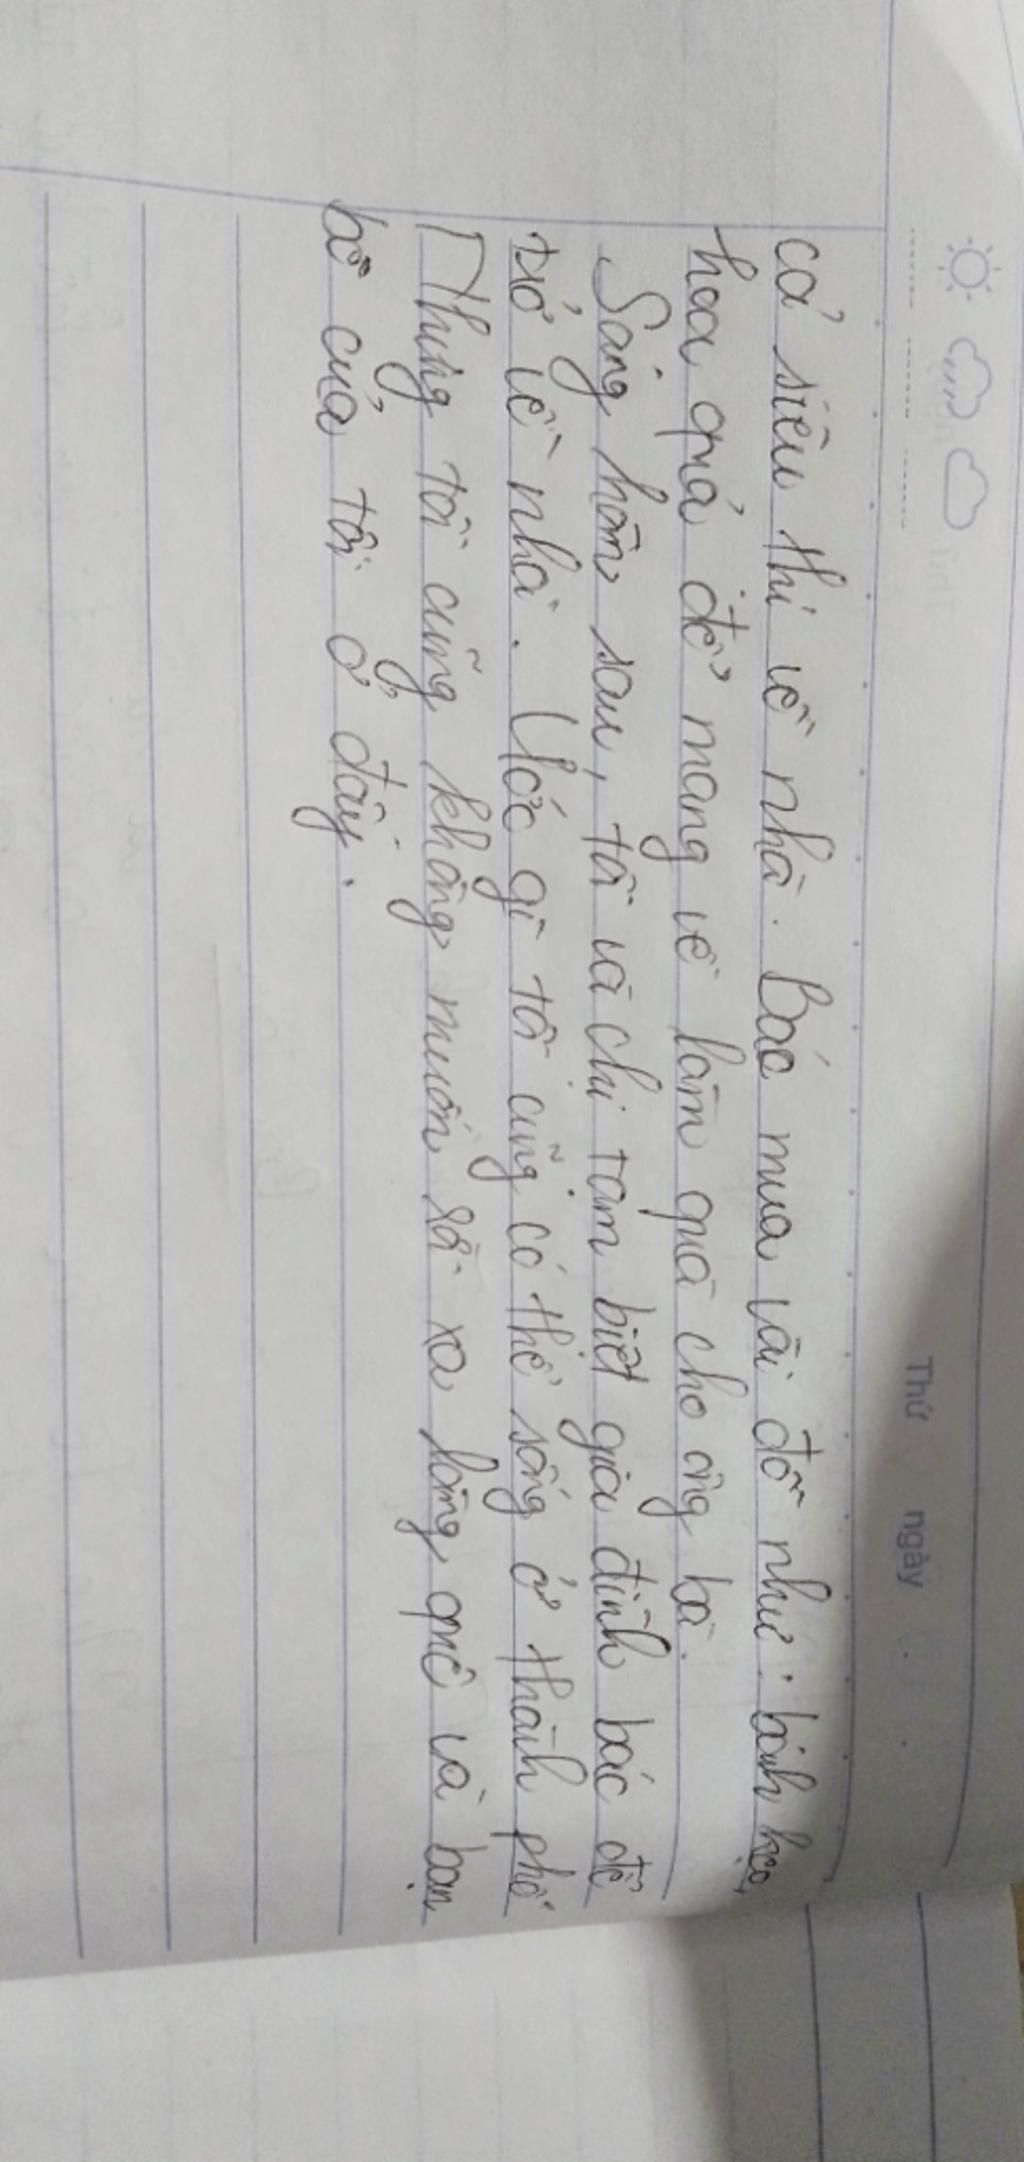 Thứ ngày
cả siêu thị về nhà. Bác mua vài đồ như: bánh kẹo,
hoa quả để mang về làm quà cho ông bà.
Sáng hôm sau, tôi và chị tạm biệt gia đình bác để
trở về nhà. Ước gì tôi cũng có thể sống ở thành phố
Nhưng tôi cũng không muốn rời xa làng quê và bạn
bè của tôi ở đây.